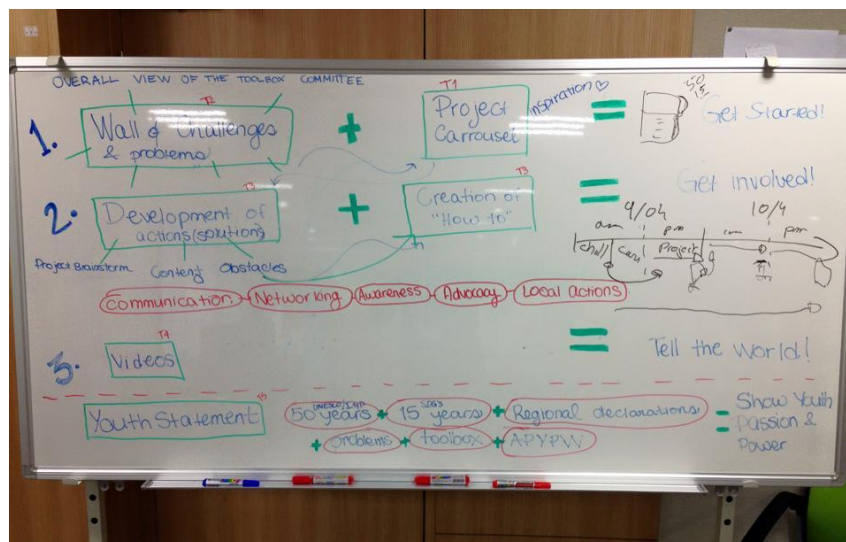 OVERALL VIEW OF THE TOOLBOX COMMITTEE
T2
T1
1.
Wall of Challenges
& problems
+
Project
Carrousel
inspiration ♡
=
Get Started!
T3
T3
2.
Development of
actions (solution)
+
Creation of
"How to"
=
Get involved!
Project Brainstorm
Content
Obstacles
9/04
10/4
am
pm
am
pm
chall
Project
Communication
Networking
Awareness
Advocacy
Local actions
T4
3.
Videos
=
Tell the World!
Youth Statement
50 years
+
SDG's
15 years
+
Regional declarations
+
problems
+
toolbox
+
APYPW
=
Show Youth
Passion &
Power